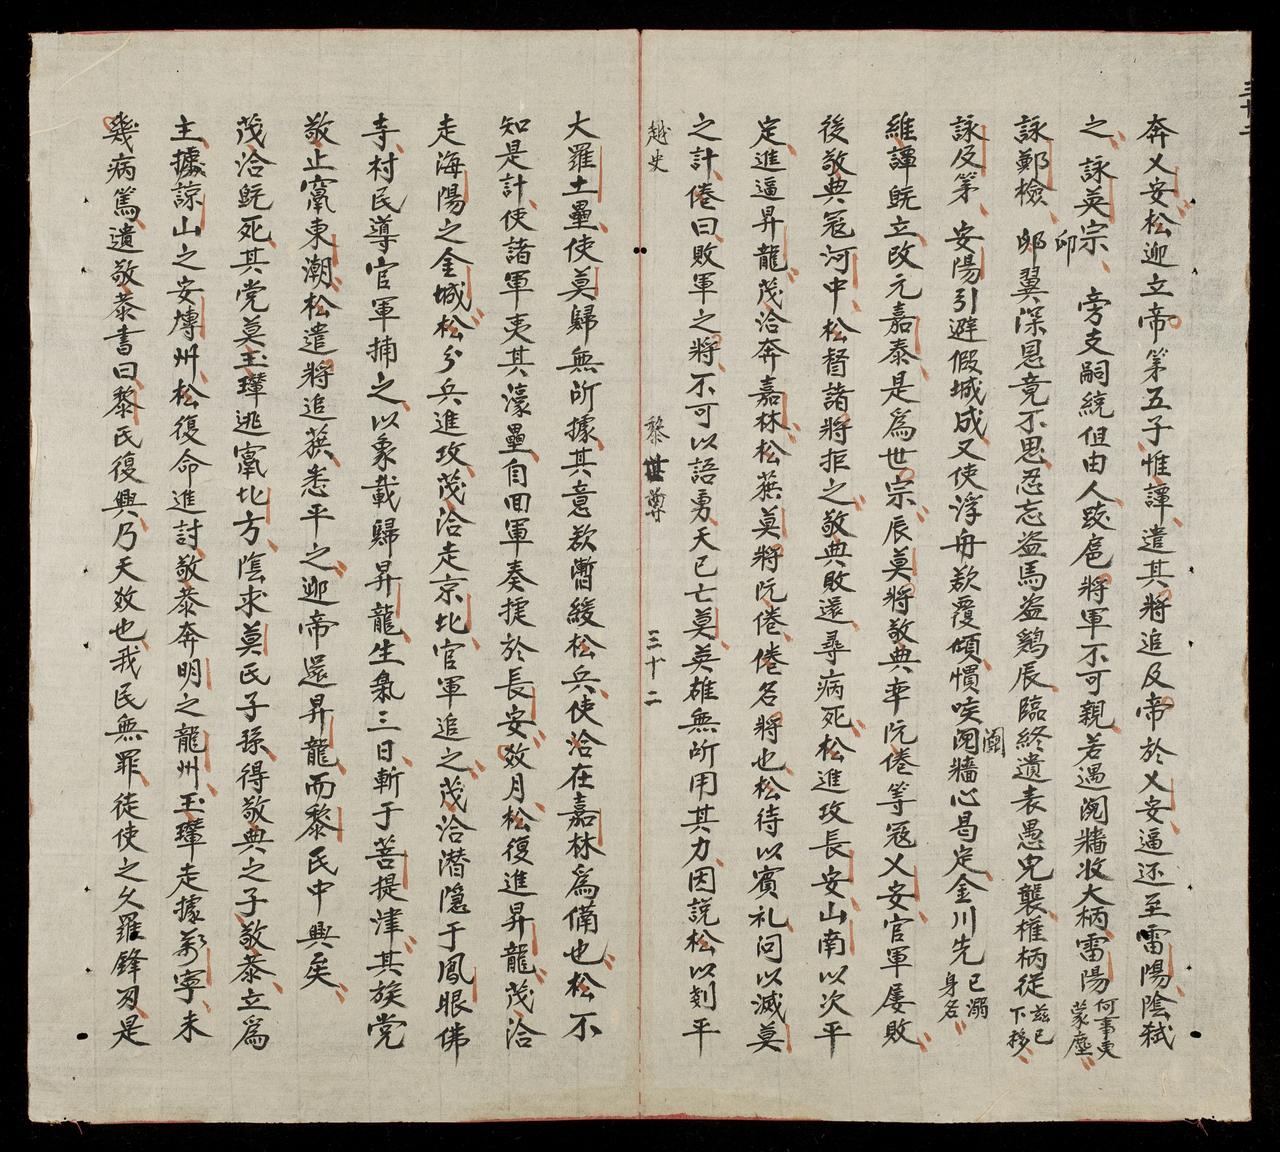 奔乂安松迎立帝第五子惟譚遣其將追及帝於乂安逼还至雷陽陰弑
之 詠英宗 旁支嗣統但由人跋扈將軍不可親若遇鬩牆收大柄雷陽何事更蒙塵
詠鄭檢 邺翼深恩竟不思忍忘盗馬盗鷄辰臨終遺表愚兒襲權柄従茲已下移
卯
詠及第 安陽引避假城成又使浮舟欲覆傾慣唉鬩牆心曷定金川先已溺身名
圖
維譚既立改元嘉泰是爲世宗辰莫將敬典率阮倦等冦乂安官軍屡敗
後敬典冦河中松督諸將拒之敬典敗還尋病死松進攻長安山南以次平
定進逼昇龍茂洽奔嘉林松蕪莫將阮倦倦名將也松待以賓礼问以滅莫
之計倦曰敗軍之將不可以語勇天已亡莫英雄無所用其力因説松以剗平
越史 黎世尊 三十二
大羅土壘使莫歸無所據其意欲暫緩松兵使洽在嘉林爲備也松不
知是計使諸軍夷其濠壘自回軍奏捷於長安数月松復進昇龍茂洽
走海陽之金城松分兵進攻茂洽走京北官軍追之茂洽潜隐于鳳眼佛
寺村民導官軍捕之以象載歸昇龍生梟三日斬于菩提津其族党
敬止竄東潮松遣將追蕪悉平之迎帝還昇龍而黎民中興矣
茂洽既死其党莫玉瓅逃竄北方陰求莫氏子孫得敬典之子敬恭立爲
主據諒山之安塼州松復命進討敬恭奔明之龍州玉瓅走據萬寧未
幾病篤遺敬恭書曰黎氏復興乃天数也我民無罪徒使之久罹鋒刃是
三十二